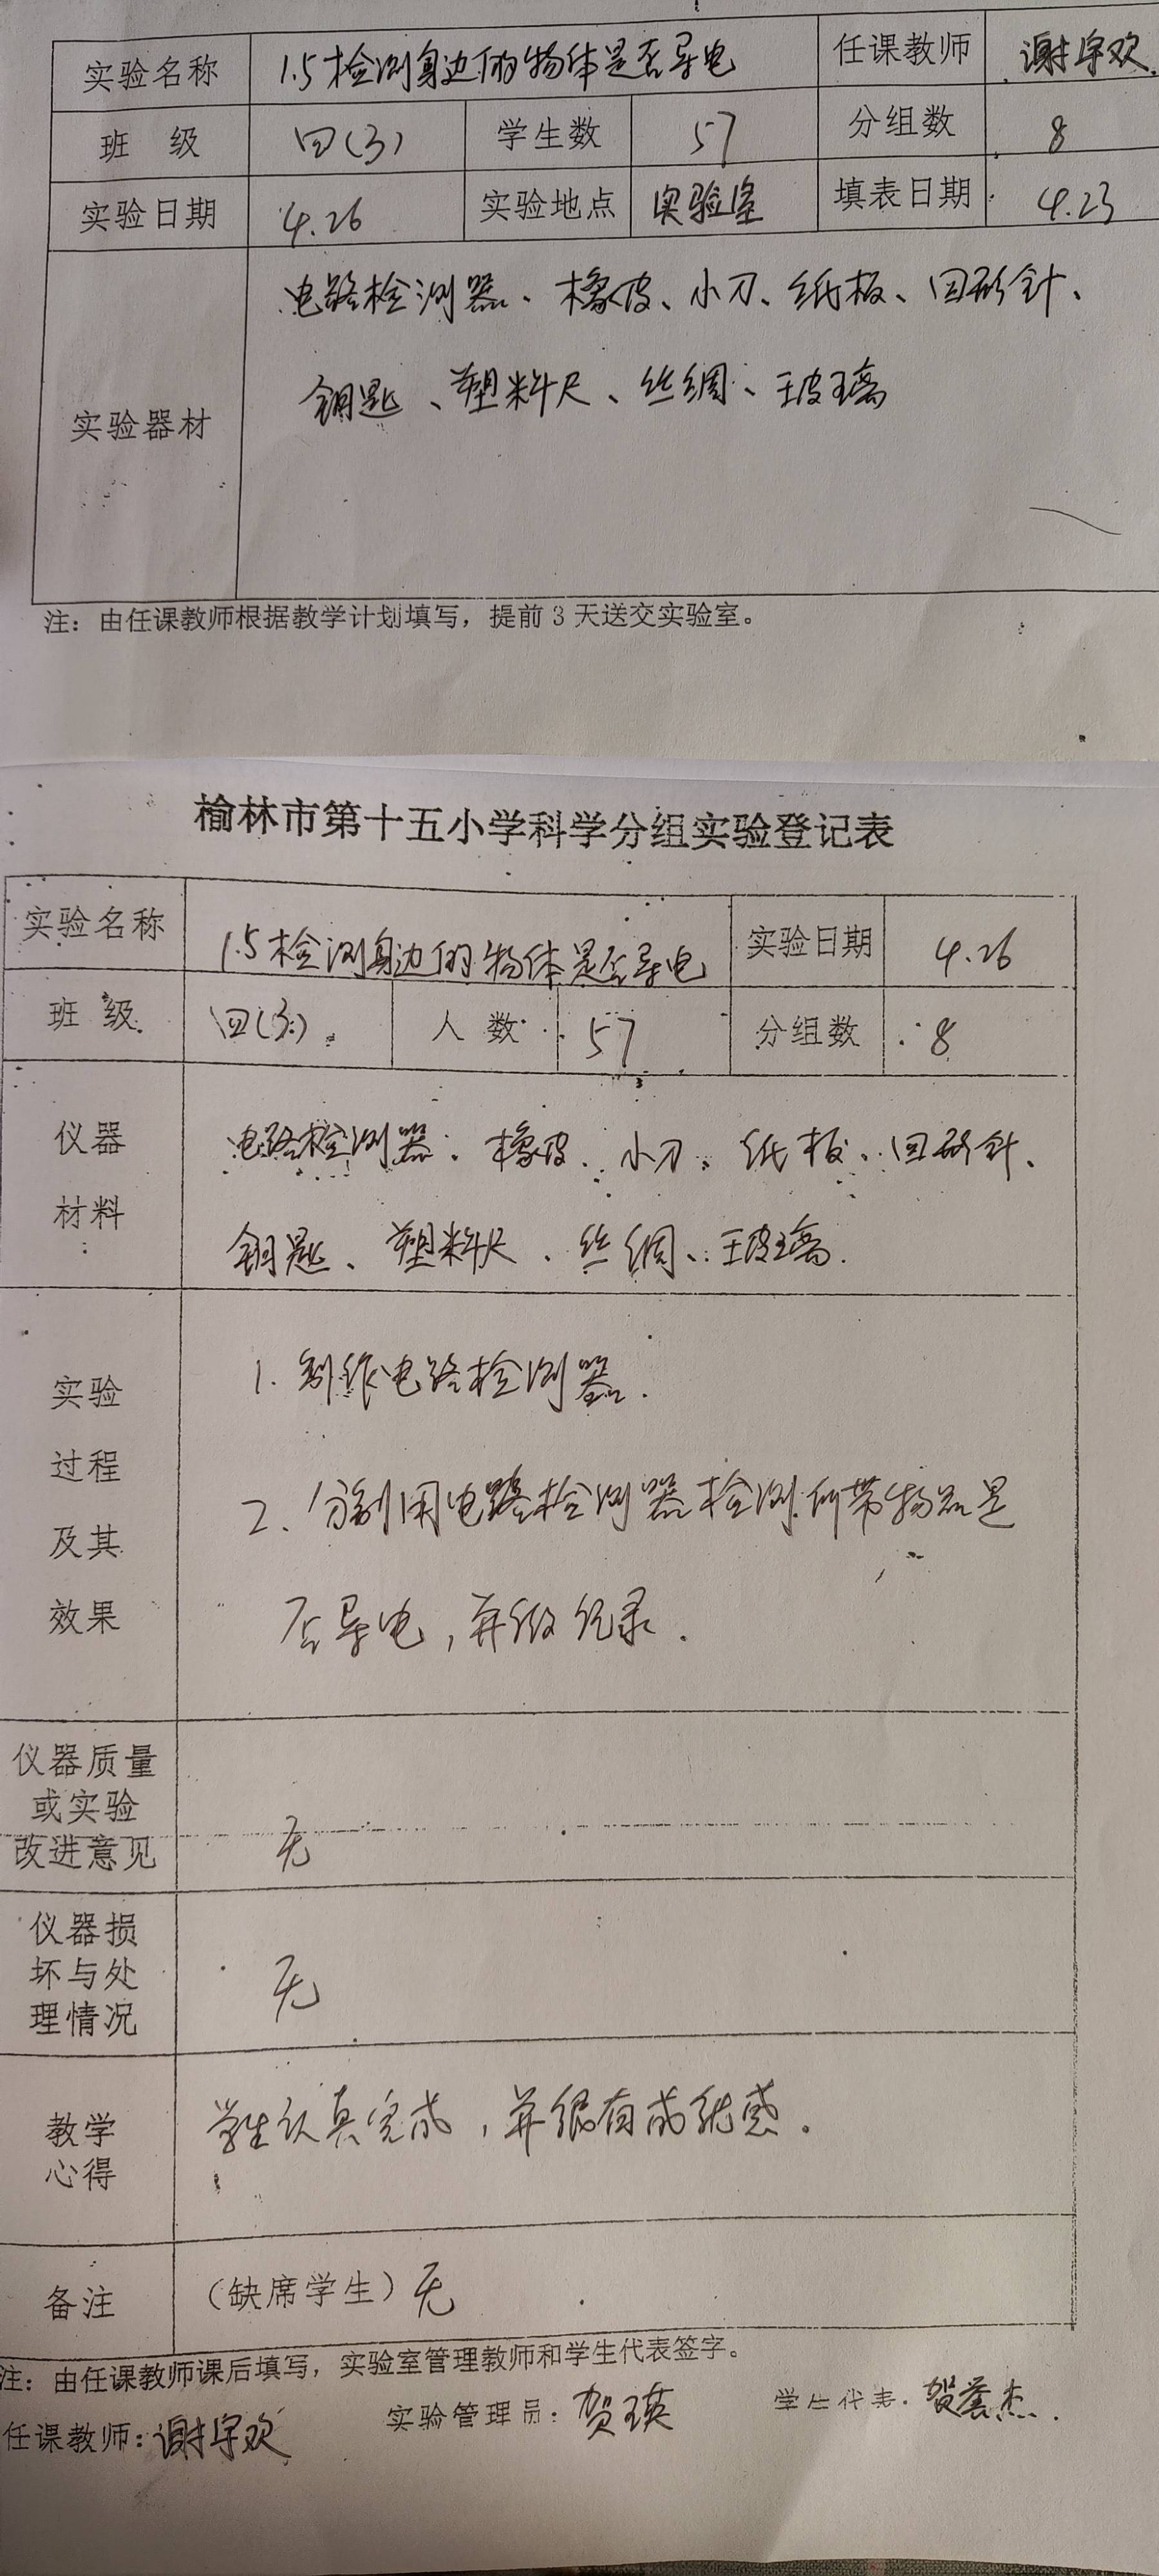 实验名称 1.5检测身边的物体是否导电 任课教师 谢宇欢
班 级 四(3) 学生数 57 分组数 8
实验日期 4.26 实验地点 实验室 填表日期 4.23
电路检测器、橡皮、小刀、纸板、回形针、
钥匙、塑料尺、丝绸、玻璃
实验器材
注：由任课教师根据教学计划填写，提前3天送交实验室。
榆林市第十五小学科学分组实验登记表
实验名称 1.5检测身边的物体是否导电 实验日期 4.26
班 级 四(3) 人 数 57 分组数 8
仪器 电路检测器、橡皮、小刀、纸板、回形针、
材料 钥匙、塑料尺、丝绸、玻璃.
实验 1.制作电路检测器.
过程 2、分别用电路检测器检测所带物品是
及其
效果 否导电，并做纪录.
仪器质量
或实验
改进意见 无
仪器损
坏与处
理情况 无
教学 学生认真完成，并很有成就感。
心得
备注 （缺席学生）无
注：由任课教师课后填写，实验室管理教师和学生代表签字。
任课教师：谢宇欢 实验管理员：贺瑛 学生代表：贺杰